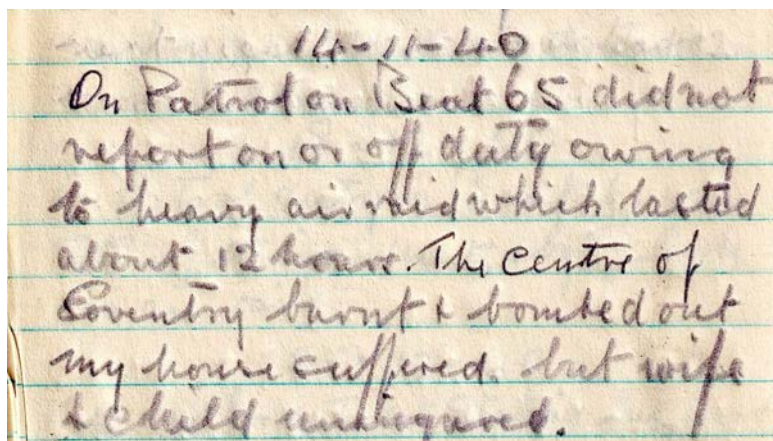 14-11-40
On Patrol on Beat 65 did not
report on or off duty owing
to heavy air raid which lasted
about 12 hours. The centre of
Coventry burnt & bombed out
my house suffered. but wife
& child uninjured.